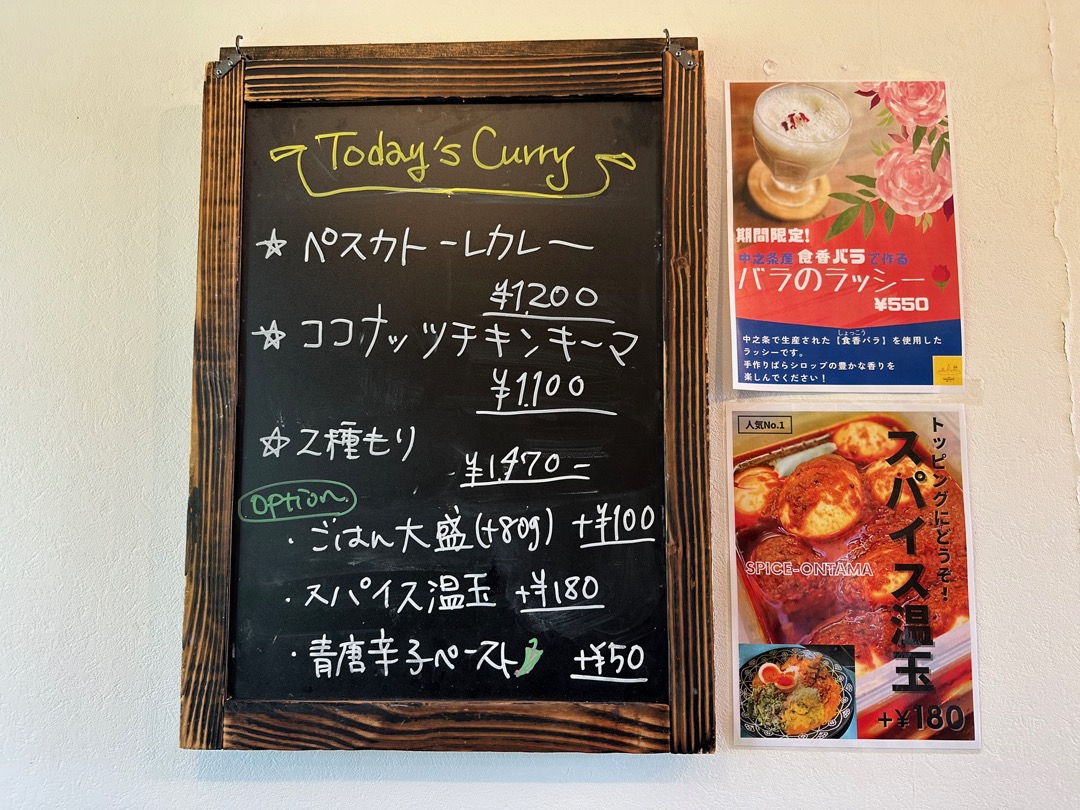 Today's Curry
☆ ペスカトーレカレー
¥1,200
☆ ココナッツチキンキーマ
¥1,100
☆ 2種もり
¥1,470-
option
・ごはん大盛(+80g) +¥100
・スパイス温玉 +¥180
・青唐辛子ペースト +¥50
期間限定!
中之条産 食香バラで作る
バラのラッシー
¥550
しょっこう
中之条で生産された【食香バラ】を使用した
ラッシーです。
手作りばらシロップの豊かな香りを
楽しんでください！
人気No.1
トッピングにどうぞ！
スパイス温玉
SPICE-ONTAMA
+¥180